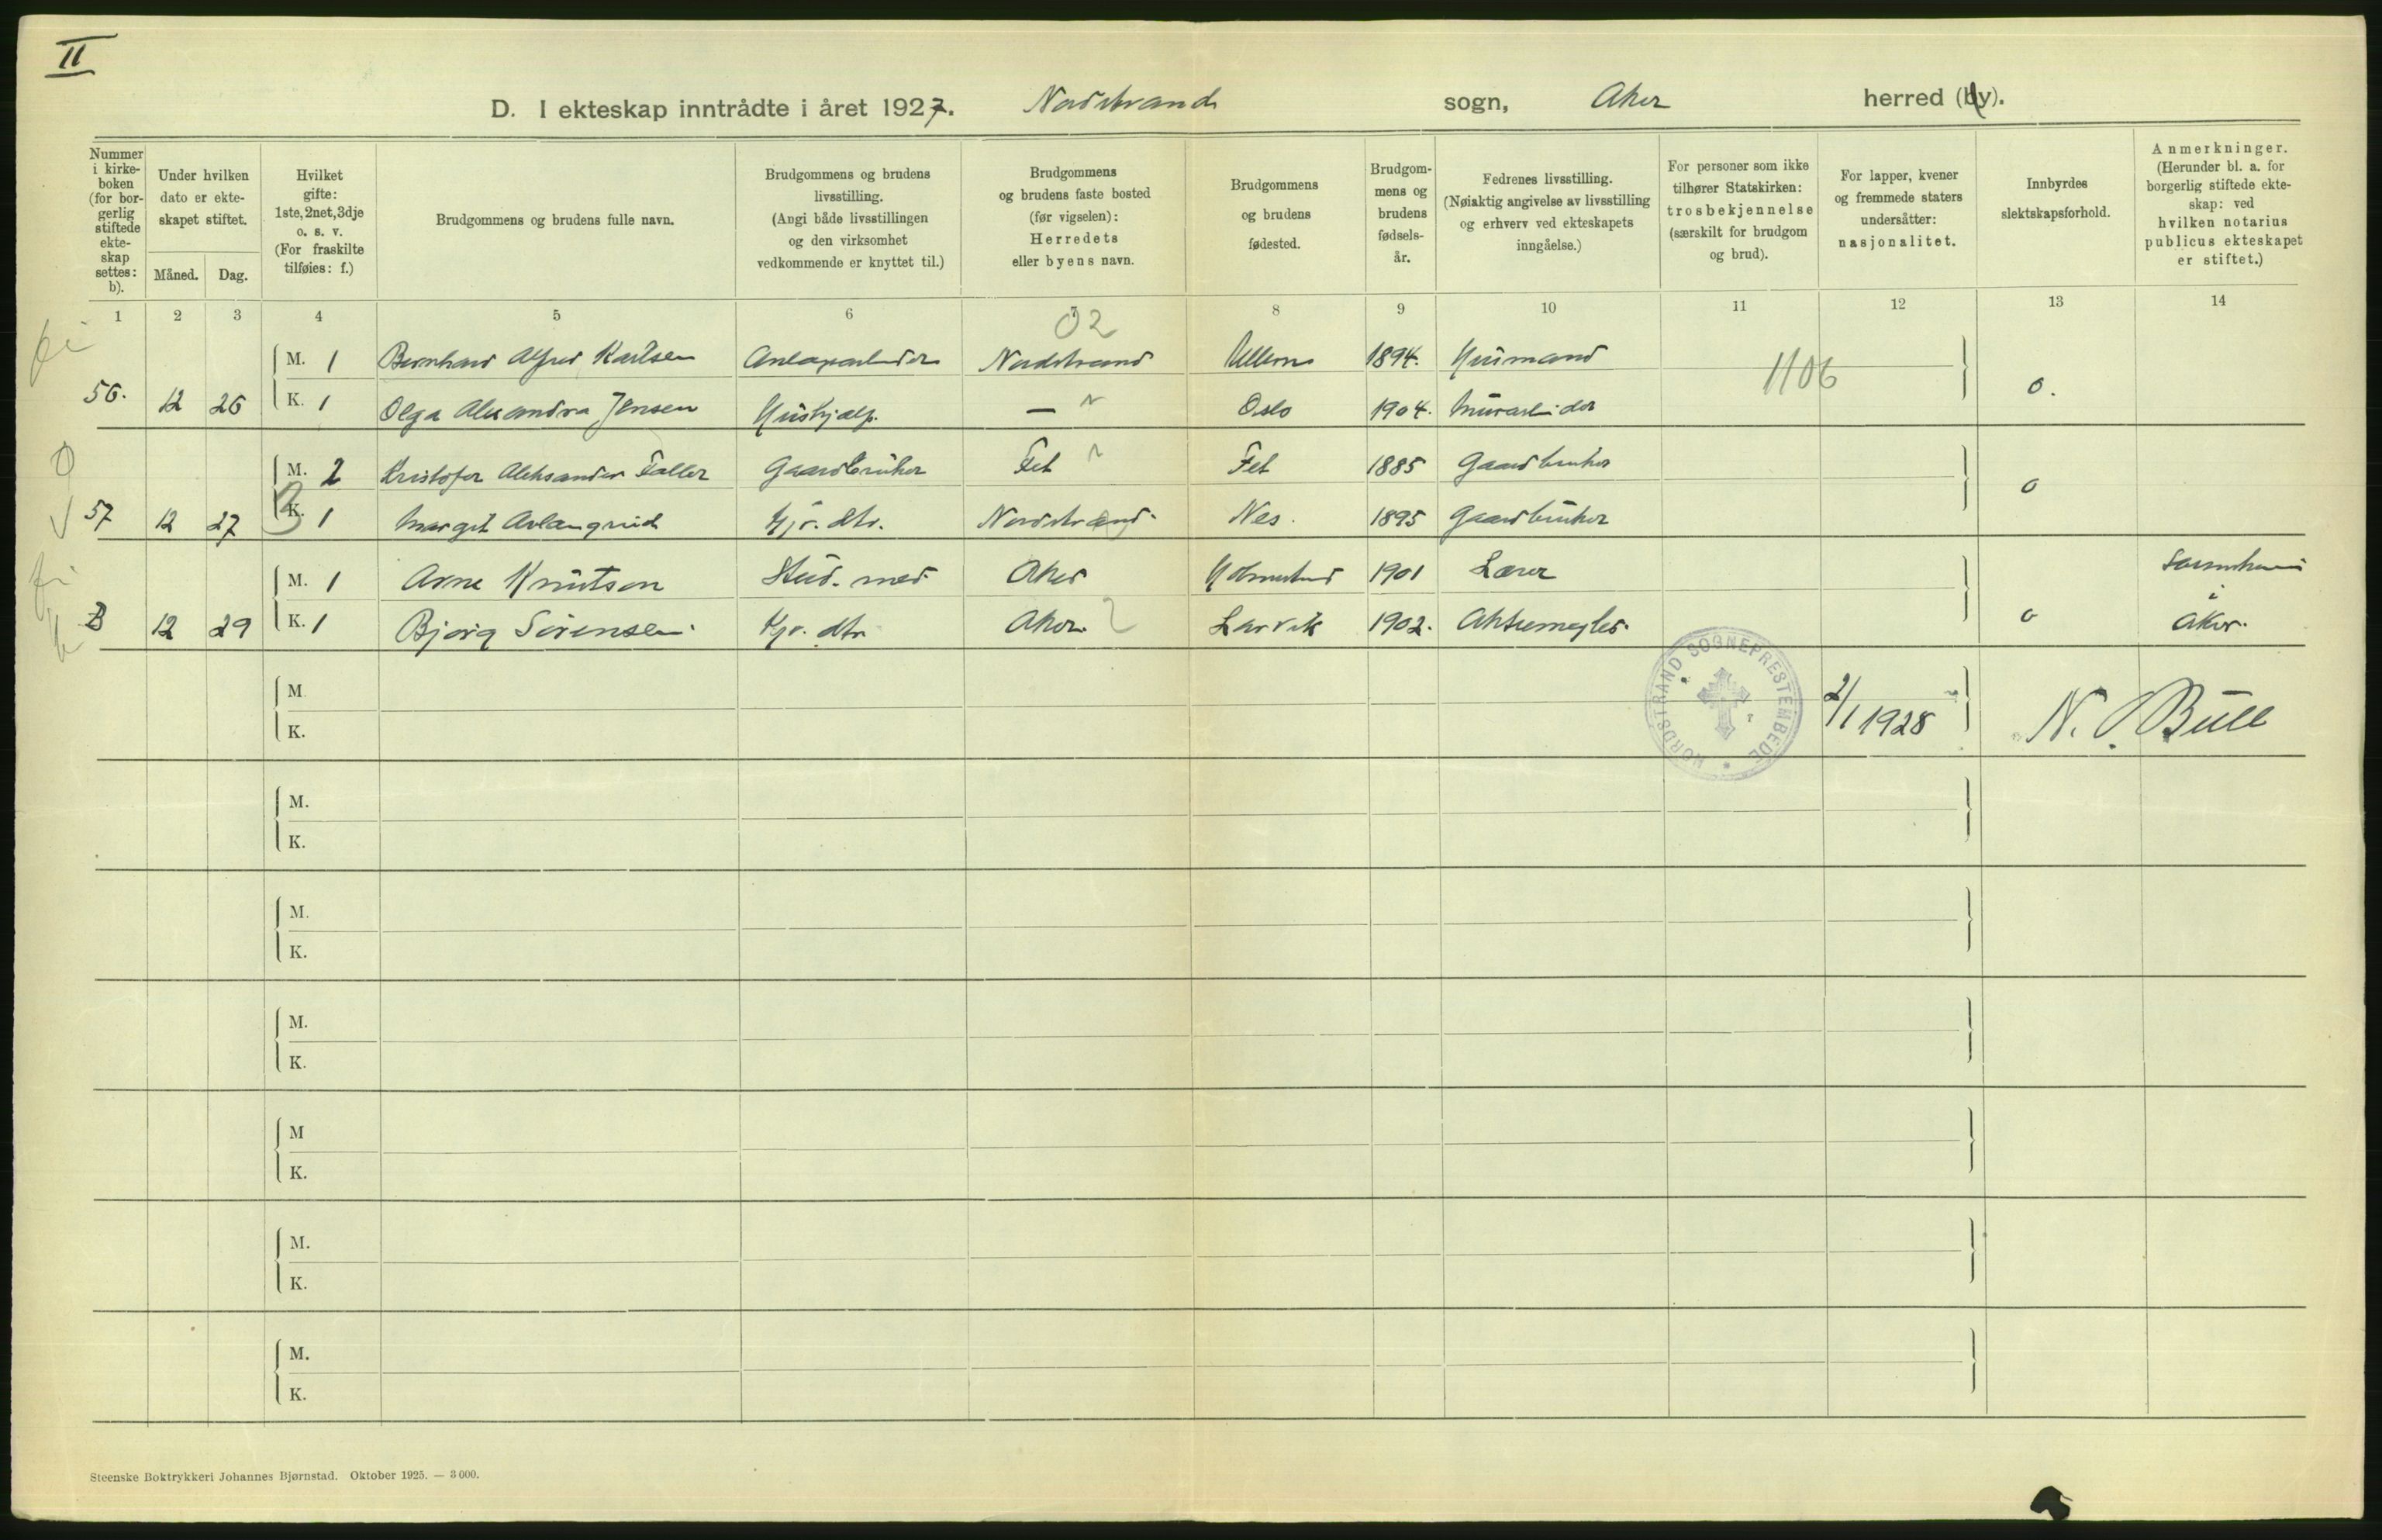 II
D. I ekteskap inntrådte i året 1927. Nordstrand sogn, Aker herred (by).
Nummer i kirkeboken (for borgerlig stiftede ekteskap settes: b).
Under hvilken dato er ekteskapet stiftet.
Måned. Dag.
Hvilket gifte: 1ste, 2net, 3dje o. s. v. (For fraskilte tilføies: f.)
Brudgommens og brudens fulle navn.
Brudgommens og brudens livsstilling. (Angi både livsstillingen og den virksomhet vedkommende er knyttet til.)
Brudgommens og brudens faste bosted (før vigselen): Herredets eller byens navn.
Brudgommens og brudens fødested.
Brudgommens og brudens fødselsår.
Fedrenes livsstilling. (Nøiaktig angivelse av livsstilling og erhverv ved ekteskapets inngåelse.)
For personer som ikke tilhører Statskirken: trosbekjennelse (særskilt for brudgom og brud).
For lapper, kvener og fremmede staters undersåtter: nasjonalitet.
Innbyrdes slektskapsforhold.
Anmerkninger. (Herunder bl. a. for borgerlig stiftede ekteskap: ved hvilken notarius publicus ekteskapet er stiftet.)
1 2 3 4 5 6 7 8 9 10 11 12 13 14
02
M. 1 Bernhard Alfred Karlsen Anlegsarbeider Nordstrand Ullern 1894. Husmand
1106
56. 12 26 K. 1 Olga Alexandra Jensen Hushjælp. — Oslo 1904. Murarbeider 0.
M. 2 Kristofer Aleksander Faller Gaardbruker Fet Fet 1885 Gaardbruker
57 12 27 K. 1 Margit Kjr. dtr. Nordstrand Nes. 1895 Gaardbruker 0
M. 1 Arne Knutsen Stud. med Aker Holmestrand 1901 Lærer
B 12 29 K. 1 Bjørg Sørensen Hjr. dtr. Aker. Larvik 1902. Aktiemegler. 0 i Aker.
NORDSTRAND SOGNEPRESTEMBEDE
M
K.
2/1 1928 N. Bull
M.
K.
M.
K.
M.
K.
M
K.
M.
K.
M.
K.
Steenske Boktrykkeri Johannes Bjørnstad. Oktober 1925. — 3 000.